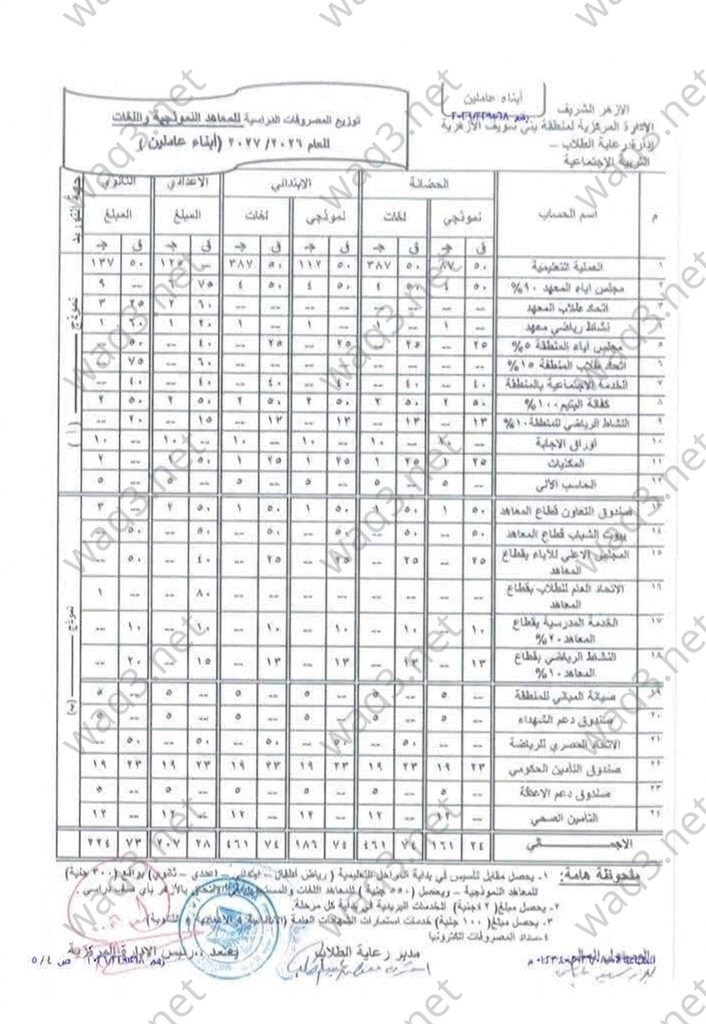 أبناء عاملين
الأزهر الشريف
الإدارة المركزية لمنطقة بني سويف الأزهرية
إدارة رعاية الطلاب –
التربية الاجتماعية
توزيع المصروفات الدراسية للمعاهد النموذجية واللغات
للعام ٢٠٢٦/ ٢٠٢٧ (أبناء عاملين)
م اسم الحساب الحضانة الابتدائي الاعدادي الثانوي جهة التوريد
نموذجي لغات نموذجي لغات المبلغ المبلغ
ق ج ق ج ق ج ق ج ق ج ق ج
١ العملية التعليمية ٥٠ ٨٧ ٥٠ ٣٨٧ ٥٠ ١١٢ ٥٠ ٣٨٧ ١٢٥ ٥٠ ١٣٧
٢ مجلس اباء المعهد ٩٠% ٥٠ ٥٠ ٤ ٥٠ ٤ ٥٠ ٤ ٧٥ -- ٩
٣ اتحاد طلاب المعهد -- -- -- -- -- -- -- -- ٦٠ ٢ ٢٥ ٣
٤ نشاط رياضي معهد -- ١ -- ١ -- ١ -- ١ ٢٠ ١ ٦٠ ١
٥ مجلس اباء المنطقة ٥% ٢٥ -- ٢٥ -- ٢٥ -- ٢٥ -- ٤٠ -- ٥٠ --
٦ اتحاد طلاب المنطقة ١٥% -- -- -- -- -- -- -- -- ٦٠ -- ٧٥ --
٧ الخدمة الاجتماعية بالمنطقة ٤٠ -- ٤٠ -- ٤٠ -- ٤٠ -- ٤٠ -- ٤٠ --
٨ كفالة اليتيم ١٠٠% ٥٠ ٢ ٥٠ ٢ ٥٠ ٢ ٥٠ ٢ ٥٠ ٢ ٥٠ ٢
٩ النشاط الرياضي للمنطقة ١٠% ١٣ -- ١٣ -- ١٣ -- ١٣ -- ١٥ -- ٢٠ --
١٠ أوراق الاجابة -- ١٠ -- ١٠ -- ١٠ -- ١٠ -- ١٠ -- ١٠
١١ المكتبات ٢٥ ١ ٢٥ ١ ٢٥ ١ ٢٥ ١ ٥٠ ١ -- ٢
١٢ الحاسب الألى -- ٥ -- ٥ -- ٥ -- ٥ -- ٥ -- ٥
نموذج (١)
١٣ صندوق التعاون قطاع المعاهد ٥٠ ١ ٥٠ ١ ٥٠ ١ ٥٠ ١ ٥٠ ٢ -- ٣
١٤ بيوت الشباب قطاع المعاهد ٥٠ -- ٥٠ -- ٥٠ -- ٥٠ -- ٥٠ -- ٥٠ --
١٥ المجلس الاعلى للأباء بقطاع المعاهد ٢٥ -- ٢٥ -- ٢٥ -- ٢٥ -- ٤٠ -- ٥٠ --
١٦ الاتحاد العام للطلاب بقطاع المعاهد -- -- -- -- -- -- -- -- ٨٠ -- -- ١
١٧ الخدمة المدرسية بقطاع المعاهد ٢٠% ١٠ -- ١٠ -- ١٠ -- ١٠ -- ١٠ -- ١٠ --
١٨ النشاط الرياضي بقطاع المعاهد ١٠% ١٣ -- ١٣ -- ١٣ -- ١٣ -- ١٥ -- ٢٠ --
١٩ صيانة المباني للمنطقة -- ٥ -- ٥ -- ٥ -- ٥ -- ٥ -- ٥
٢٠ صندوق دعم الشهداء -- ٥ -- ٥ -- ٥ -- ٥ -- ٥ -- ٥
٢١ الاتحاد المصري للرياضة -- -- ٥٠ -- ٥٠ -- ٥٠ -- ٥٠ -- ٥٠ --
صندوق التأمين الحكومي ٢٣ ١٩ ٢٣ ١٩ ٢٣ ١٩ ٢٣ ١٩ ٢٣ ١٩ ٢٣ ١٩
٢٣ صندوق دعم الاعاقة -- ٥ -- ٥ -- ٥ -- ٥ -- ٥ -- ٥
التأمين الصحي -- ١٢ -- ١٢ -- ١٢ -- ١٢ -- ١٢ -- ١٢
نموذج
الاجمـــــالي ٢٤ ١٦١ ٧٤ ٤٦١ ٧٤ ١٨٦ ٧٤ ٤٦١ ٢٨ ٢٠٧ ٧٣ ٢٢٤
ملحوظة هامة: ١- يحصل مقابل تأسيس في بداية المراحل التعليمية ( رياض اطفال – ابتدائي – اعدادي – ثانوي) بواقع (٣٠٠ جنية)
للمعاهد النموذجية – ويحصل (٥٥٠ جنية) للمعاهد اللغات بالأزهر بأي صف دراسي .
٢- يحصل مبلغ (٤٢جنية) الخدمات البريدية في بداية كل مرحلة.
٣- يحصل مبلغ( ١٠٠ جنية) خدمات استمارات الشهادات العامة (الابتدائية و الاعدادية و الثانوية)
٤-سداد المصروفات الكترونيا
مدير رعاية الطلاب
يعتمد ،،رئيس الإدارة المركزية
ص ٤ / ٥
waq3.net